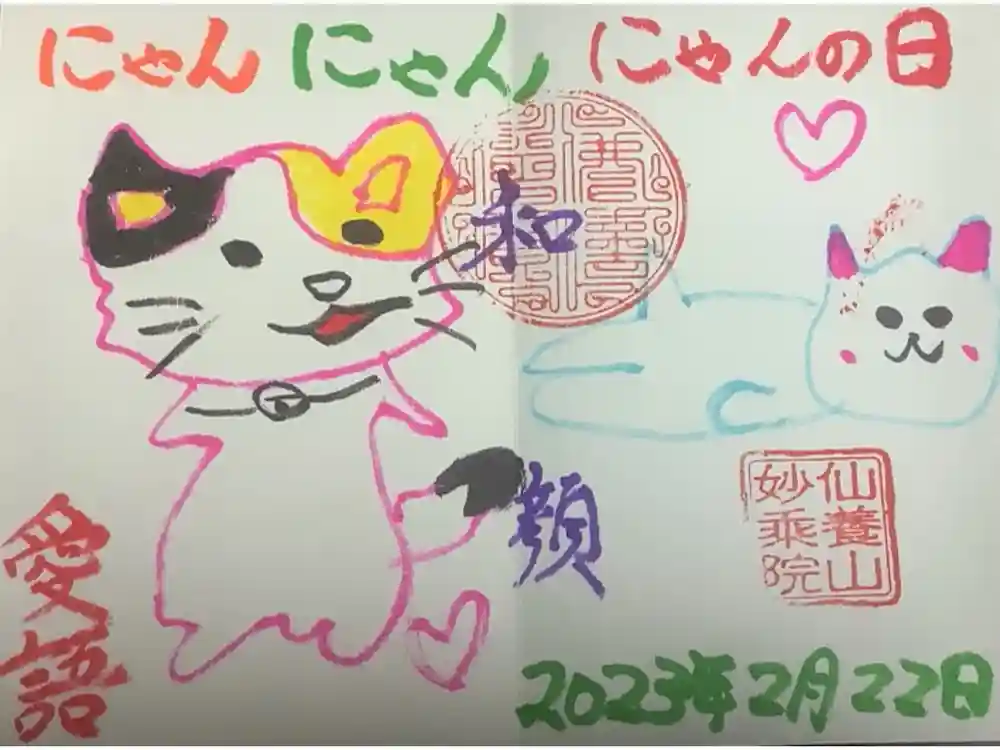 にゃんにゃんにゃんの日
和顔
愛語
仙養山
妙乗院
2023年2月22日